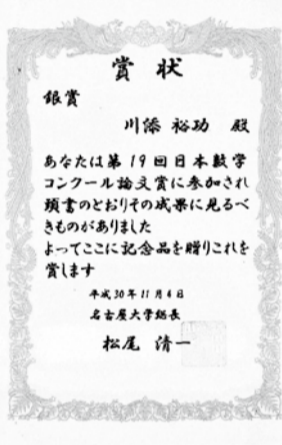 賞状
銀賞
川添 裕功 殿
あなたは第19回日本数学
コンクール論文賞に参加され
頭書のとおりその成果に見るべ
きものがありました
よってここに記念品を贈りこれを
賞します
平成30年11月4日
名古屋大学総長
松尾 清一